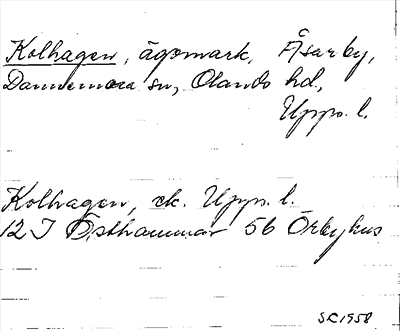 Kolhagen, ägomark, Åsarby,
Dannemora sn, Olands hd.,
Upps. l.
Kolhagen, ek. Upps. l.
12 I Östhammar 56 Örbyhus
SC 1958